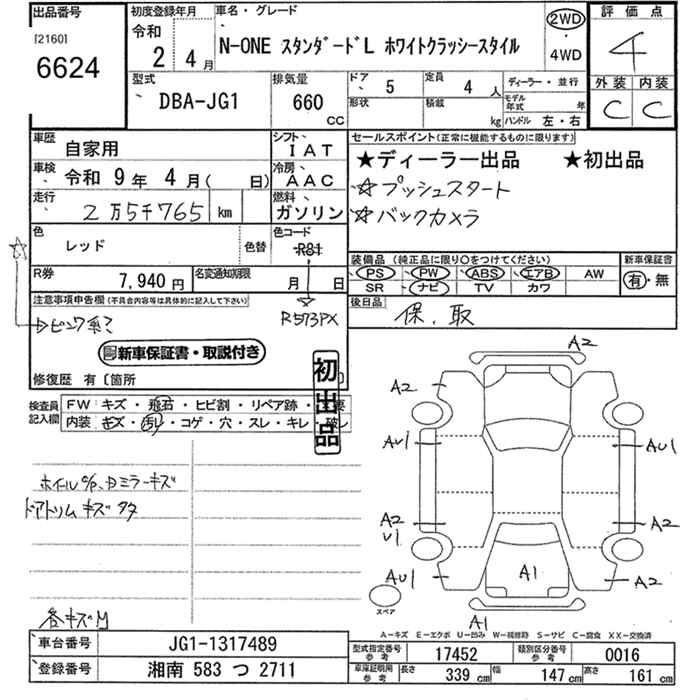 出品番号 初度登録年月 車名・グレード 評価点
[2160] 令和 2WD
6624 2年 4月 N-ONE スタンダードL ホワイトクラッシースタイル 4WD 4
型式 排気量 ドア 5 定員 4 人 ディーラー・並行 外装 内装
DBA-JG1 660 cc 形状 積載 kg モデル年式 年 ハンドル 左・右 C C
車歴 自家用 シフト IAT セールスポイント(正常に機能するものに限ります)
車検 令和 9年 4月( 日) 冷房 AAC ★ディーラー出品 ★初出品
走行 2万5千765 km 燃料 ガソリン ☆プッシュスタート
☆バックカメラ
色 レッド 色替 色コード R81
装備品(純正品に限り○をつけてください) 新車保証書
R券 7,940円 名変通知期限 月 日 PS PW ABS エアB AW 有・無
SR ナビ TV カワ
注意事項申告欄(不具合内容等は具体的に記入して下さい) R573PX 後日品 保、取
ピンク系?
新車保証書・取説付き
修復歴 有 [箇所 ]
初出品
検査員記入欄 FW キズ・飛石・ヒビ割・リペア跡・
内装 キズ・汚レ・コゲ・穴・スレ・キレ・破レ
ホイルC/P、カミラーキズ
ドアトリムキズ
各キズM
A2
A2
AU1 AU1
A2 A2
U1
AU1 A1 A2
スペア
A1
A-キズ E-エクボ U-凹み W-補修跡 S-サビ C-腐食 XX-交換済
車台番号 JG1-1317489 型式指定番号 参考 17452 類別区分番号 参考 0016
登録番号 湘南 583 つ 2711 車庫証明用 参考 長さ 339 cm 幅 147 cm 高さ 161 cm